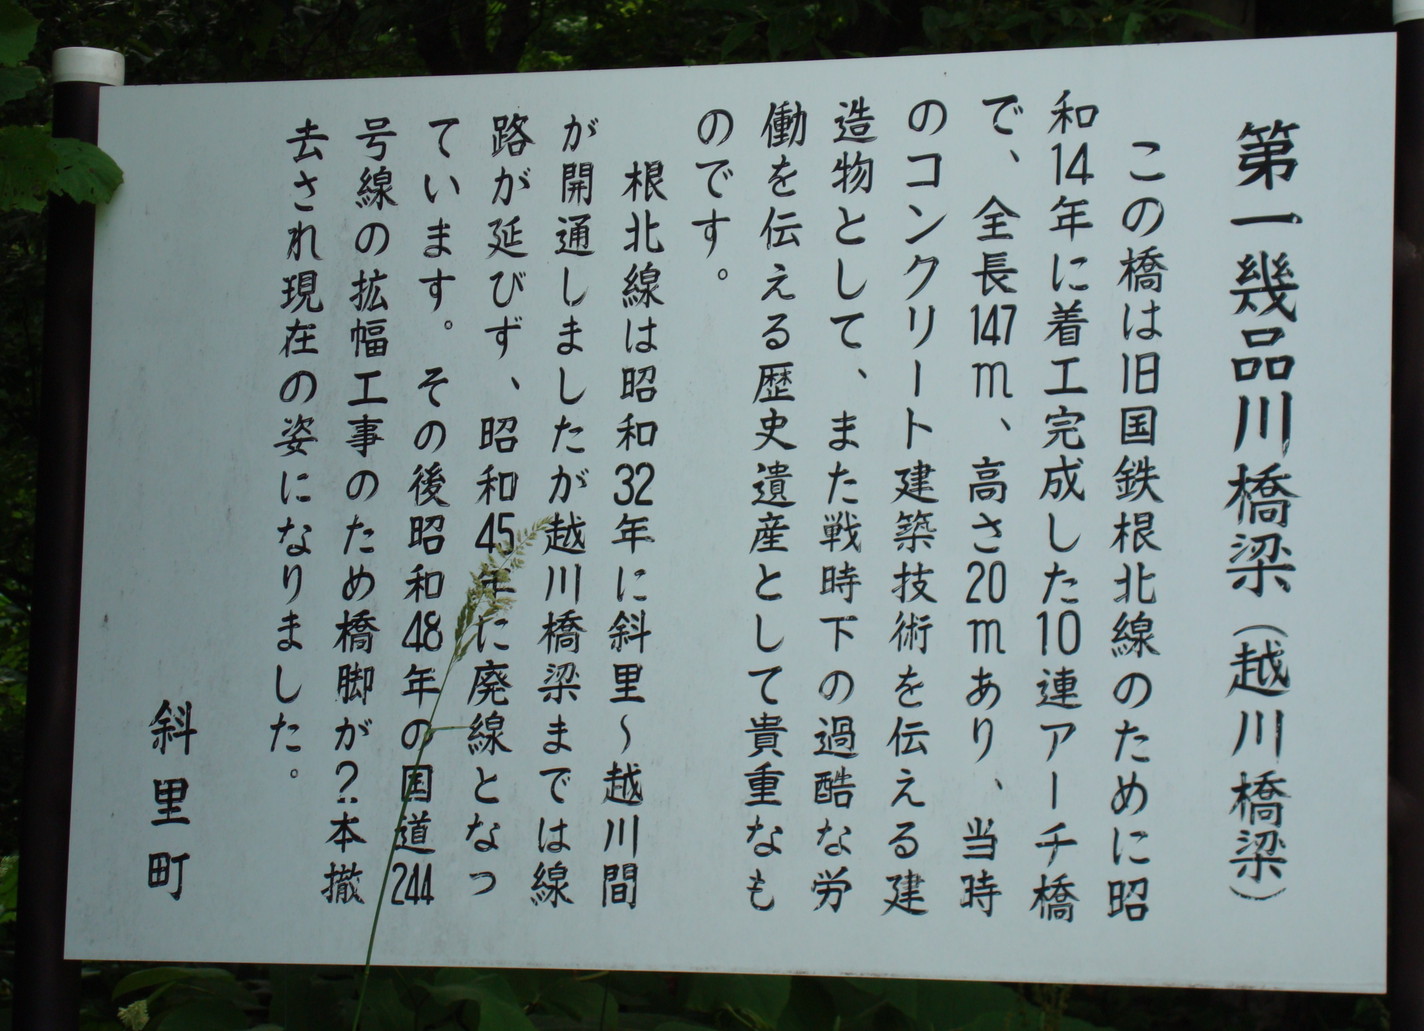 第一幾品川橋梁(越川橋梁)
この橋は旧国鉄根北線のために昭
和14年に着工完成した10連アーチ橋
で、全長147m、高さ20mあり、当時
のコンクリート建築技術を伝える建
造物として、また戦時下の過酷な労
働を伝える歴史遺産として貴重なも
のです。
根北線は昭和32年に斜里～越川間
が開通しましたが越川橋梁までは線
路が延びず、昭和45年に廃線となっ
ています。その後昭和48年の国道244
号線の拡幅工事のため橋脚が2本撤
去され現在の姿になりました。
斜里町